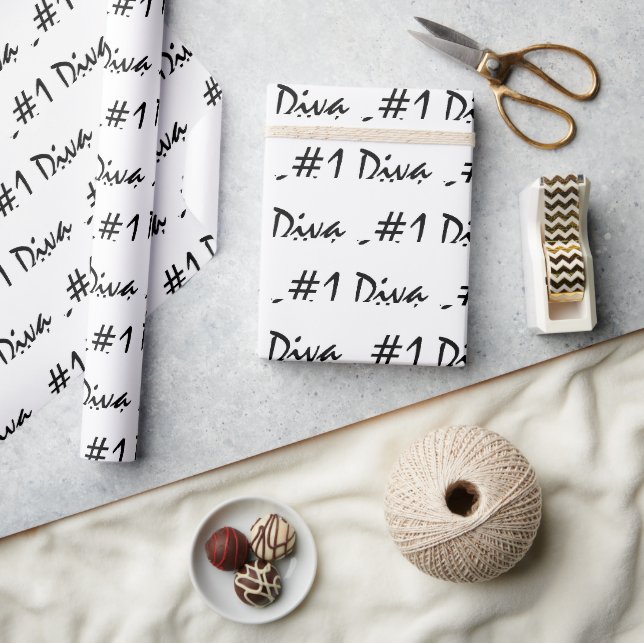 #1 Diva
#1 Diva
#1 Diva
Diva #1
Diva #1
#1
#1
Diva
#1
Diva
#1
Diva
#1
Diva
#1
Diva
#1
Diva #1 D
#1 Diva #
Diva #1 D
#1 Diva #
Diva #1 D